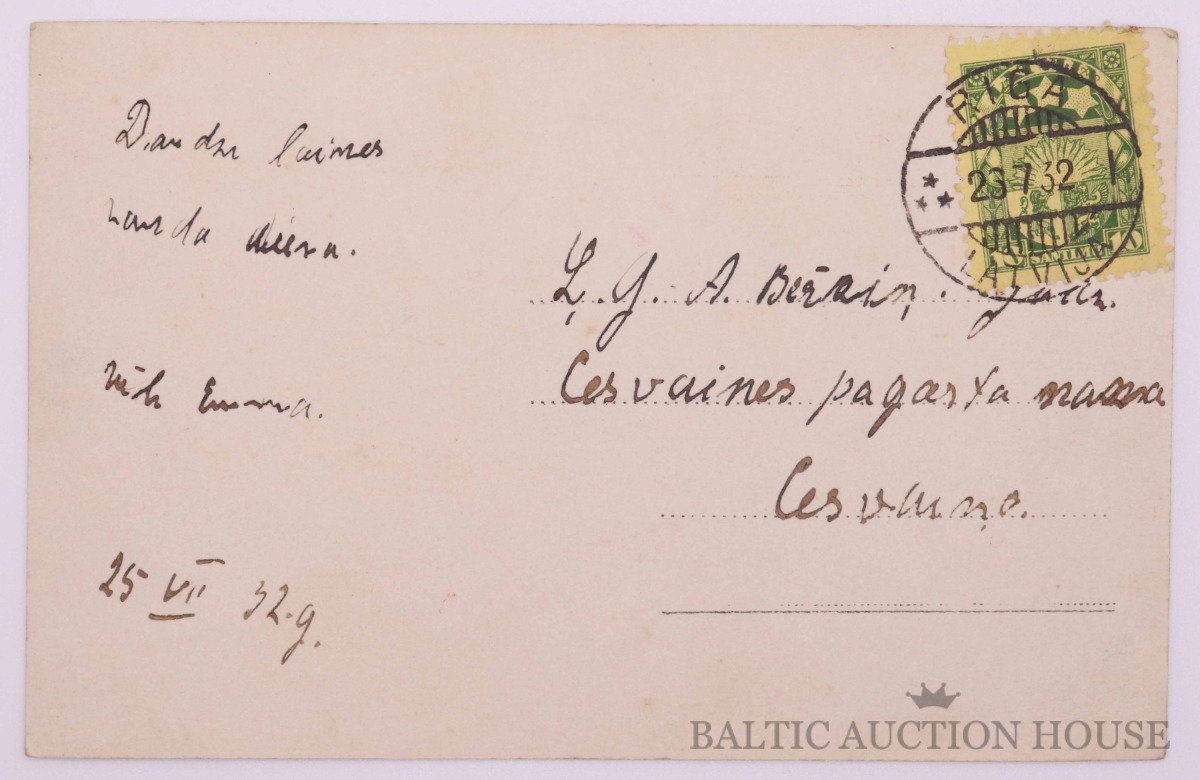 Daudz laimes
varda diena.
Emma.
25 VII 32.g.
RIGA
23 7 32 1
LATVIJA
Ļ. G. A. Bērziņ.
Cesvaines pagasta nama
Cesvaine.
BALTIC AUCTION HOUSE